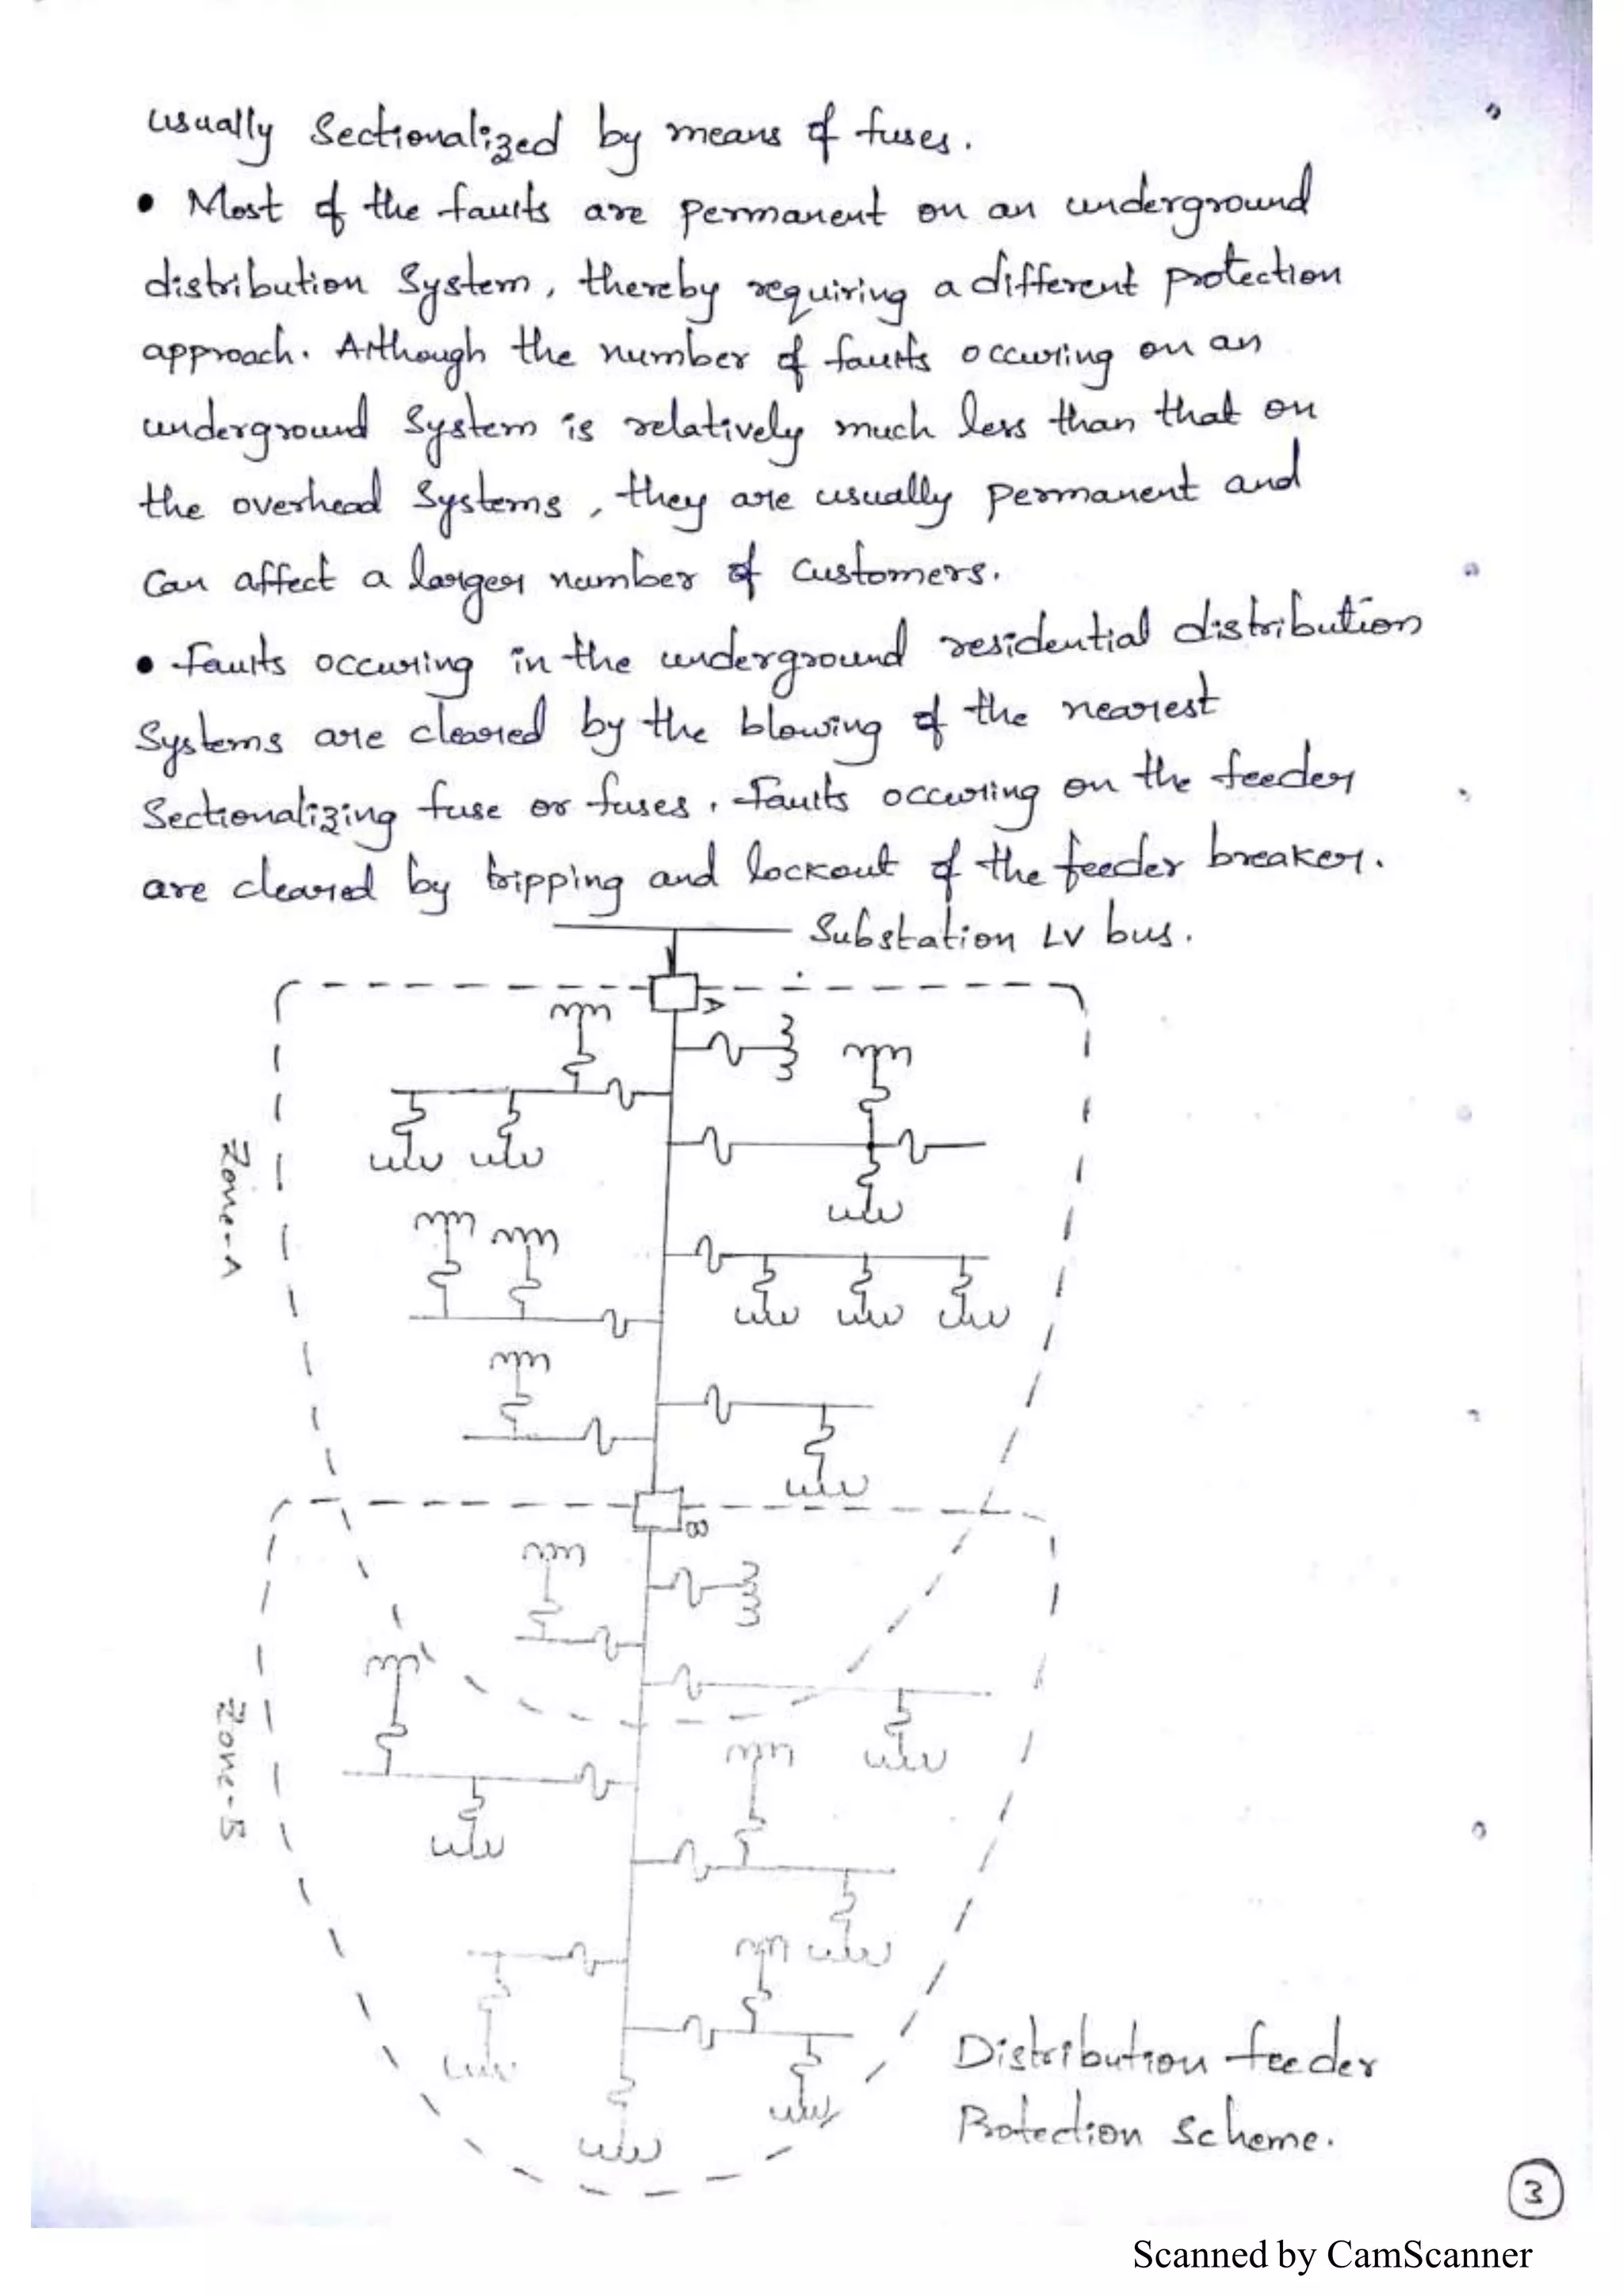 usually Sectionalized by means of fuses.
• Most of the faults are permanent on an underground
distribution System, thereby requiring a different protection
approach. Although the number of faults occuring on an
underground System is relatively much less than that on
the overhead Systems, they are usually permanent and
Can affect a larger number of Customers.
• Faults occuring in the underground residential distribution
Systems are cleared by the blowing of the nearest
Sectionalizing fuse or fuses. Faults occuring on the feeder
are cleared by tripping and lockout of the feeder breaker.
Substation LV bus.
A
Zone-A
B
Zone-B
Distribution feeder
Protection Scheme.
3
Scanned by CamScanner